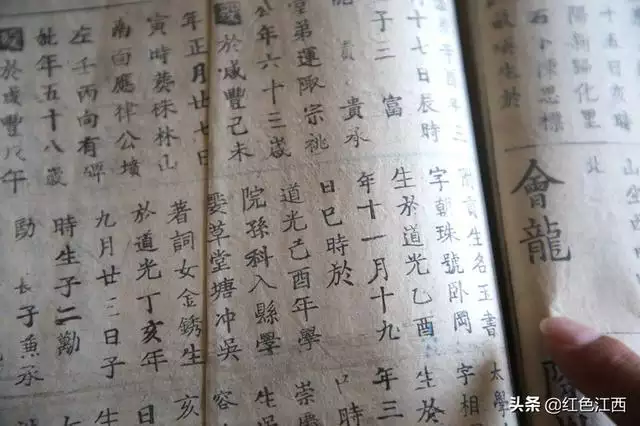 十五日亥時
陽新歸化里
石卜陳思標
北
會龍
辛酉年三
十七日辰時
子三 富
貴 貴承
堂弟運陬宗祧
公年六十三歲
歿於咸豐己未
年正月廿七日
寅時葬株林山
南面應律公墳
左壬丙向有碑
妣年五十八歲
歿於咸豐戊午
附貢生名玉書
字朝珠號臥岡
生於道光乙酉
年十一月十九
日巳時於
道光己酉年學
院孫科入縣學
娶草堂塘冲吳
著詞女金銹生
於道光丁亥年
九月廿三日子
時生子二勱
長子黃承
太學
字相
生於
年三
頭条 @红色江西